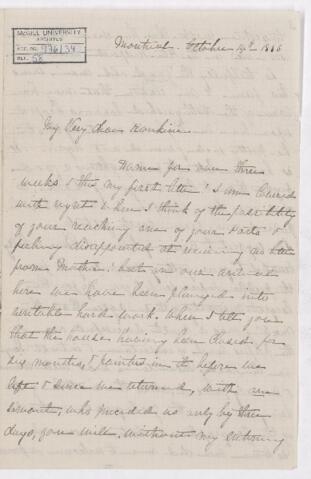 McGILL UNIVERSITY
ARCHIVES
ACC. NO.
REF. 58
Montreal. October 19th
My Very dear
Home for over three
weeks & this my first letter! I am
with when I think of the possibility
of your reaching one of your Ports &
feeling disappointed at receiving no letter
from Mother: but on our arrival
here we have been plunged into
veritable hard work. When I tell you
that the house having been closed for
six months, & painted in it before we
left & since we returned, with one
servant, who preceded us only by three
days, you will, without my entering